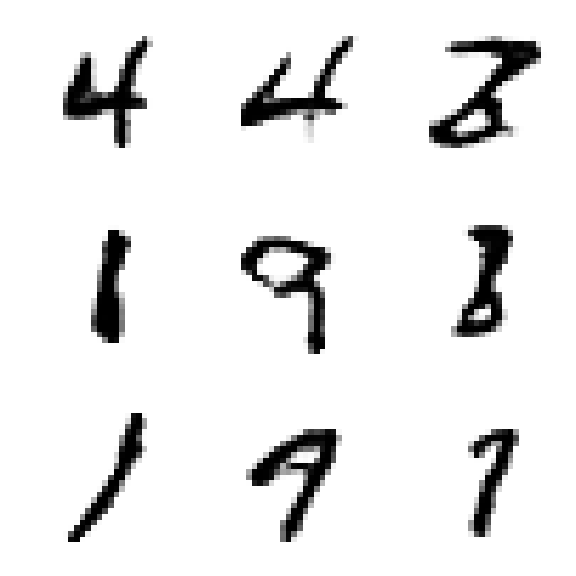 4 4 8
1 9 8
1 9 7